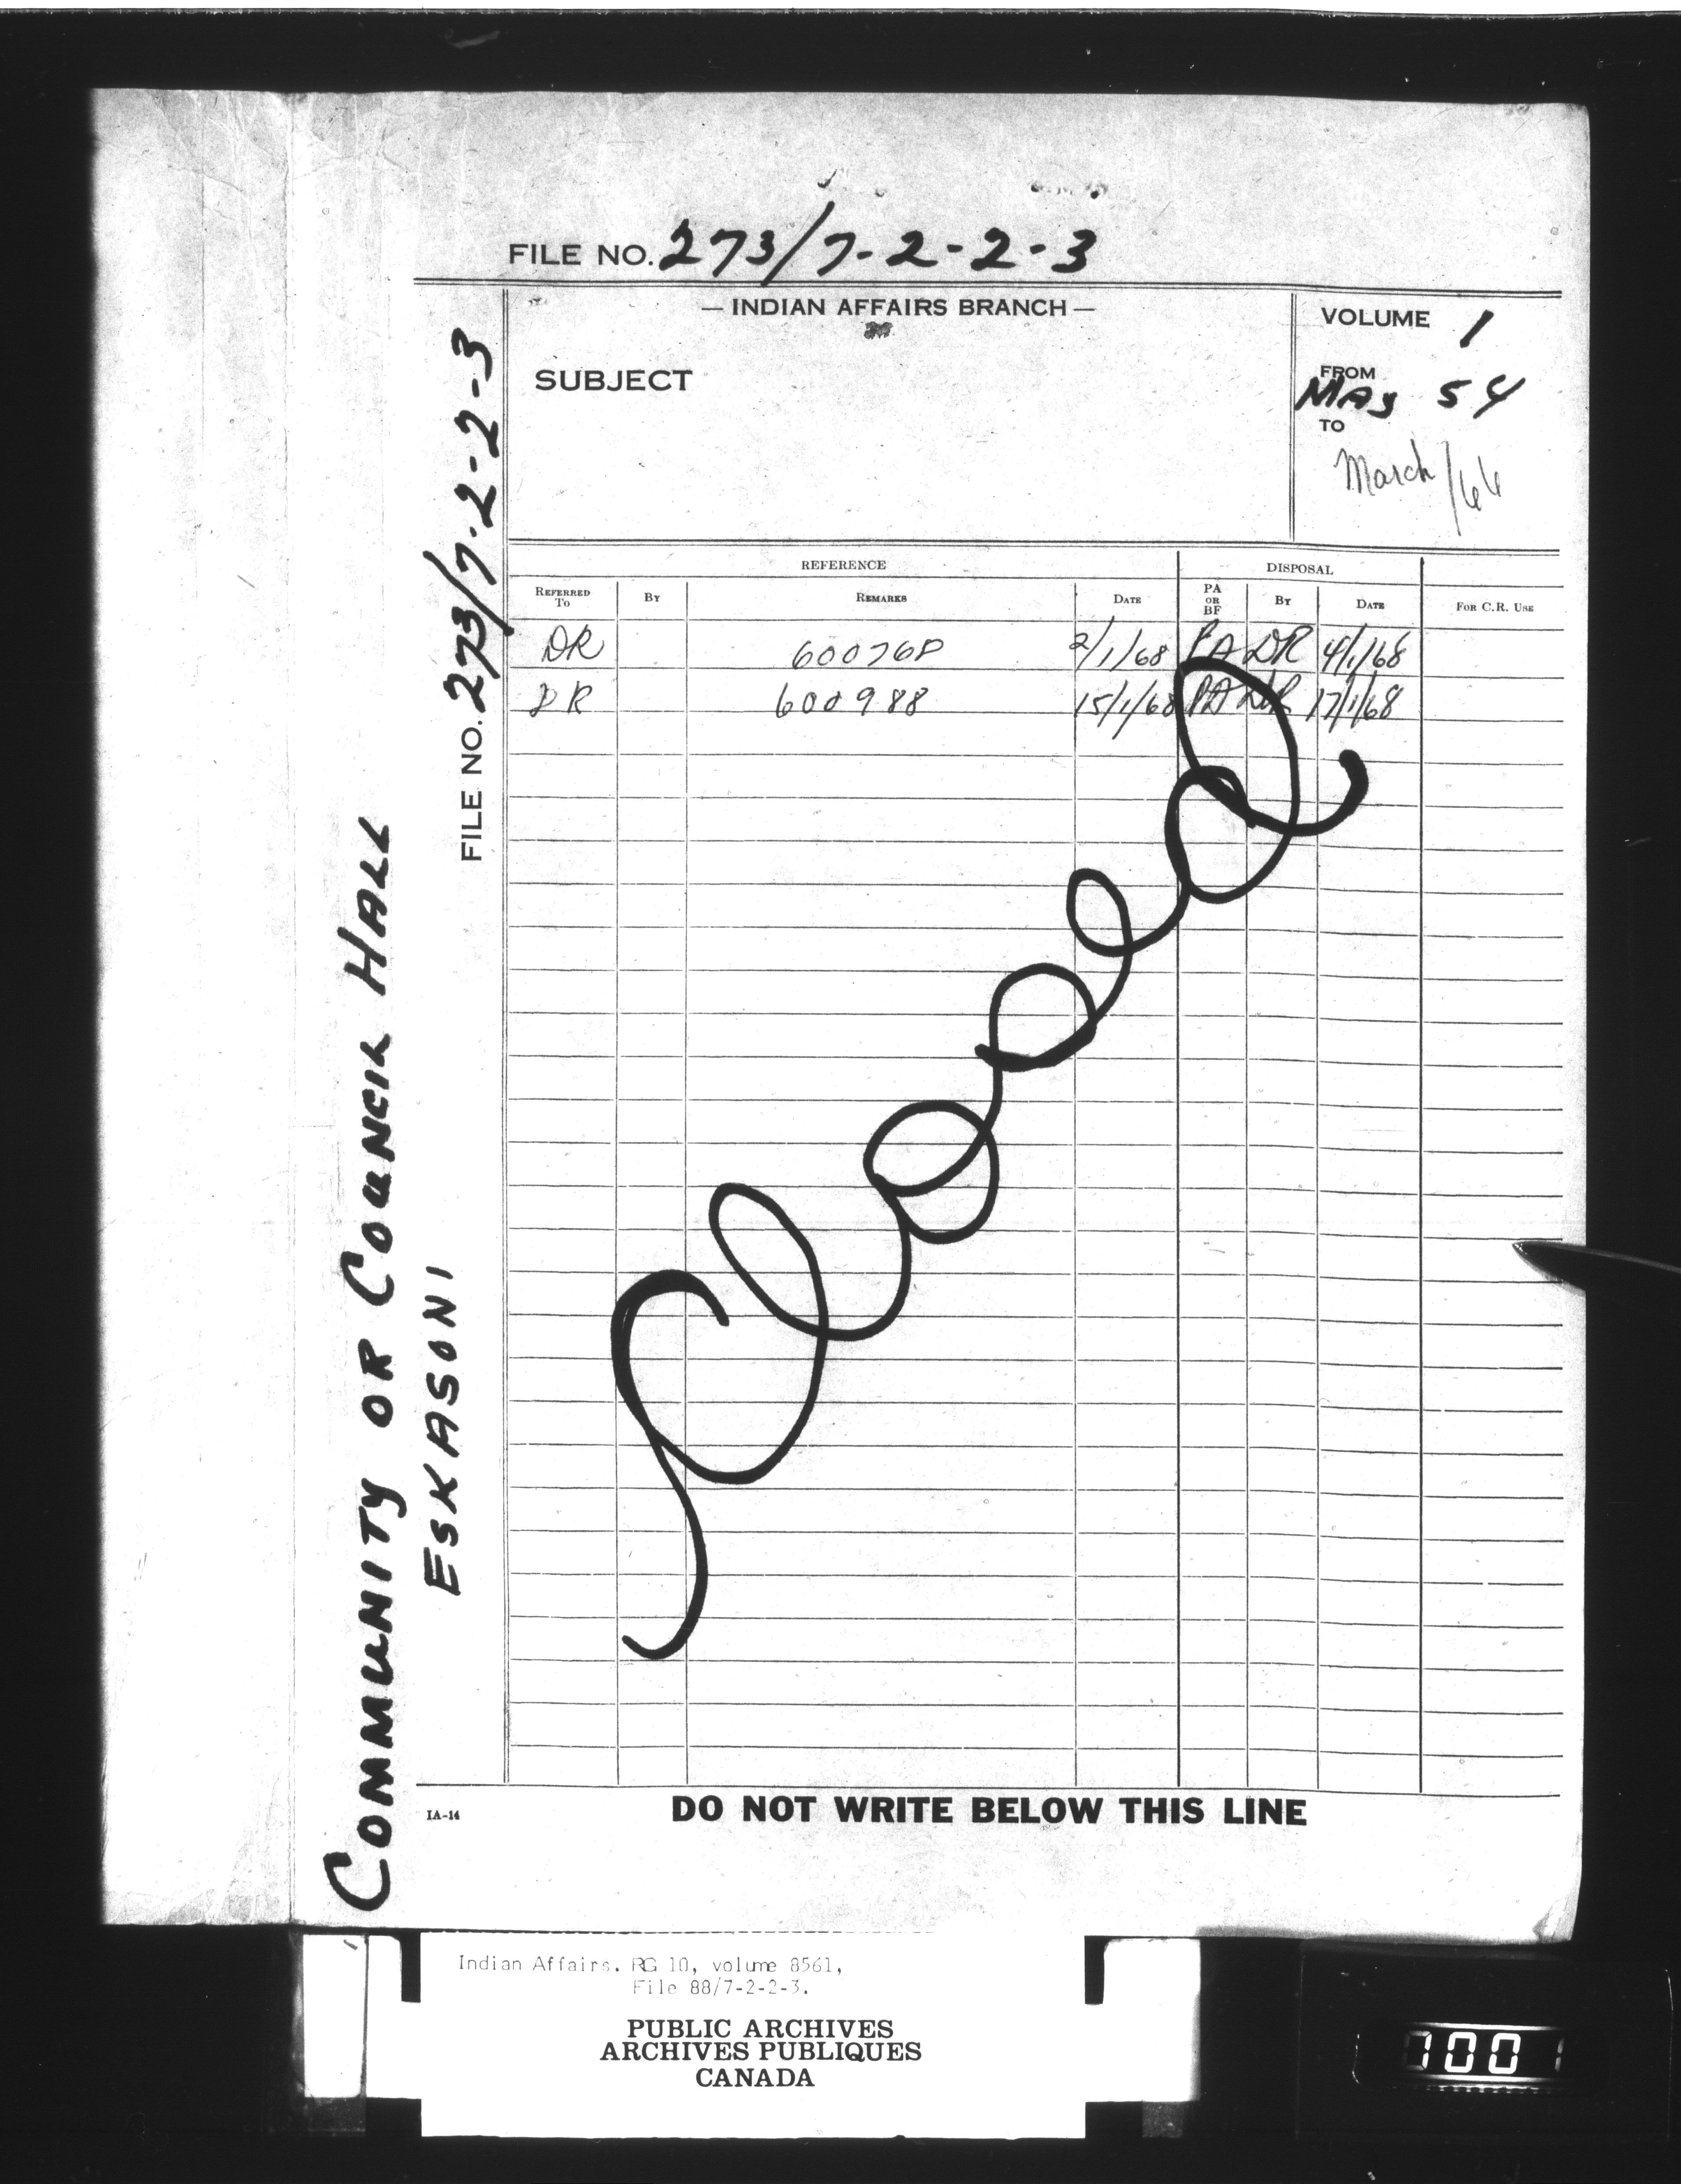 FILE NO. 273/7-2-2-3
— INDIAN AFFAIRS BRANCH —
SUBJECT
VOLUME 1
FROM
MAY 54
TO
March/66
FILE NO. 273/7-2-2-3
COMMUNITY OR COUNCIL HALL
ESKASONI
REFERENCE
DISPOSAL
REFERRED TO BY REMARKS DATE PA OR BF BY DATE FOR C.R. USE
DR 60076P 2/1/68 PA DR 4/1/68
DR 600988 15/1/68 PA DR 17/1/68
Closed
IA-14
DO NOT WRITE BELOW THIS LINE
Indian Affairs. RG 10, volume 8561,
File 88/7-2-2-3.
PUBLIC ARCHIVES
ARCHIVES PUBLIQUES
CANADA
1001